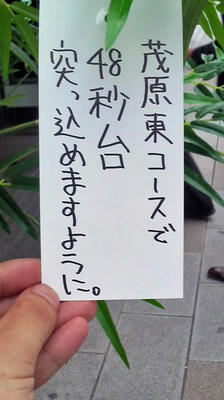 茂原東コースで
48秒台
突っ込めますように。